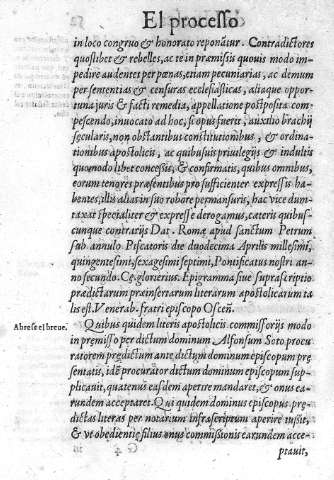 El processo
in loco congruo & honorato reponãtur. Contradictores
quoslibet & rebelles, ac te in præmissis quouis modo im-
pedire audentes per pœnas, etiam pecuniarias, ac demum
per sententias & censuras ecclesiasticas, aliaque oppor-
tuna juris & facti remedia, appellatione postposita com-
pescendo, inuocato ad hoc, si opus fuerit, auxilio brachij
sęcularis, non obstantibus constitutionibus, & ordina-
tionibus apostolicis, ac quibusuis priuilegijs & indultis
quomodo libet concessis, & confirmatis, quibus omnibus,
eorum tenores præsentibus pro sufficienter expressis ha-
bentes, illis alias in suo robore permansuris, hac vice dum-
taxat specialiter & expresse derogamus, cæteris quibus-
cunque contrarijs Dat. Romæ apud sanctum Petrum
sub annulo Piscatoris die duodecima Aprilis millesimi,
quingentesimi, sexagesimi septimi, Pontificatus nostri an-
no secundo. Cę. glorierius. Epigramma siue suprascriptio
prædictarum præinsertarum literarum apostolicarum ta
lis est. Venerab. fratri episcopo Oscen.
Abrese el breue.
Quibus quidem literis apostolicis commissorijs modo
in premisso per dictum dominum Alfonsum Soto procu
ratorem prędictum ante dictum dominum episcopum prę
sentatis, idẽ procurator dictum dominum episcopum sup
plicauit, quatenus easdem aperire mandaret, & onus ea-
rundem acceptaret. Qui quidem dominus episcopus pre-
dictas literas per notarium infrascriptum aperire iussit,
& vt obedientię filius onus commissionis earundem acce-
ptauit,